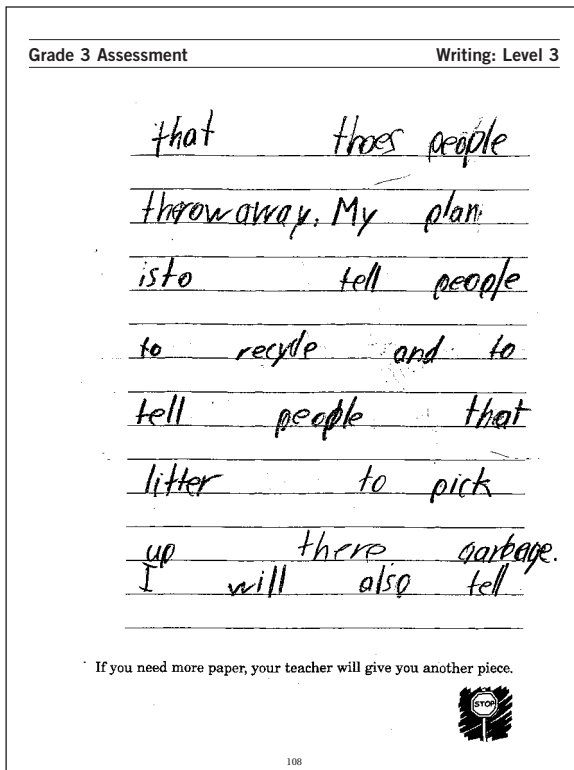 Grade 3 Assessment Writing: Level 3
that thoes people
therow away. My plan
is to tell people
to recycle and to
tell people that
litter to pick
up there garbage.
I will also tell
If you need more paper, your teacher will give you another piece.
STOP
108